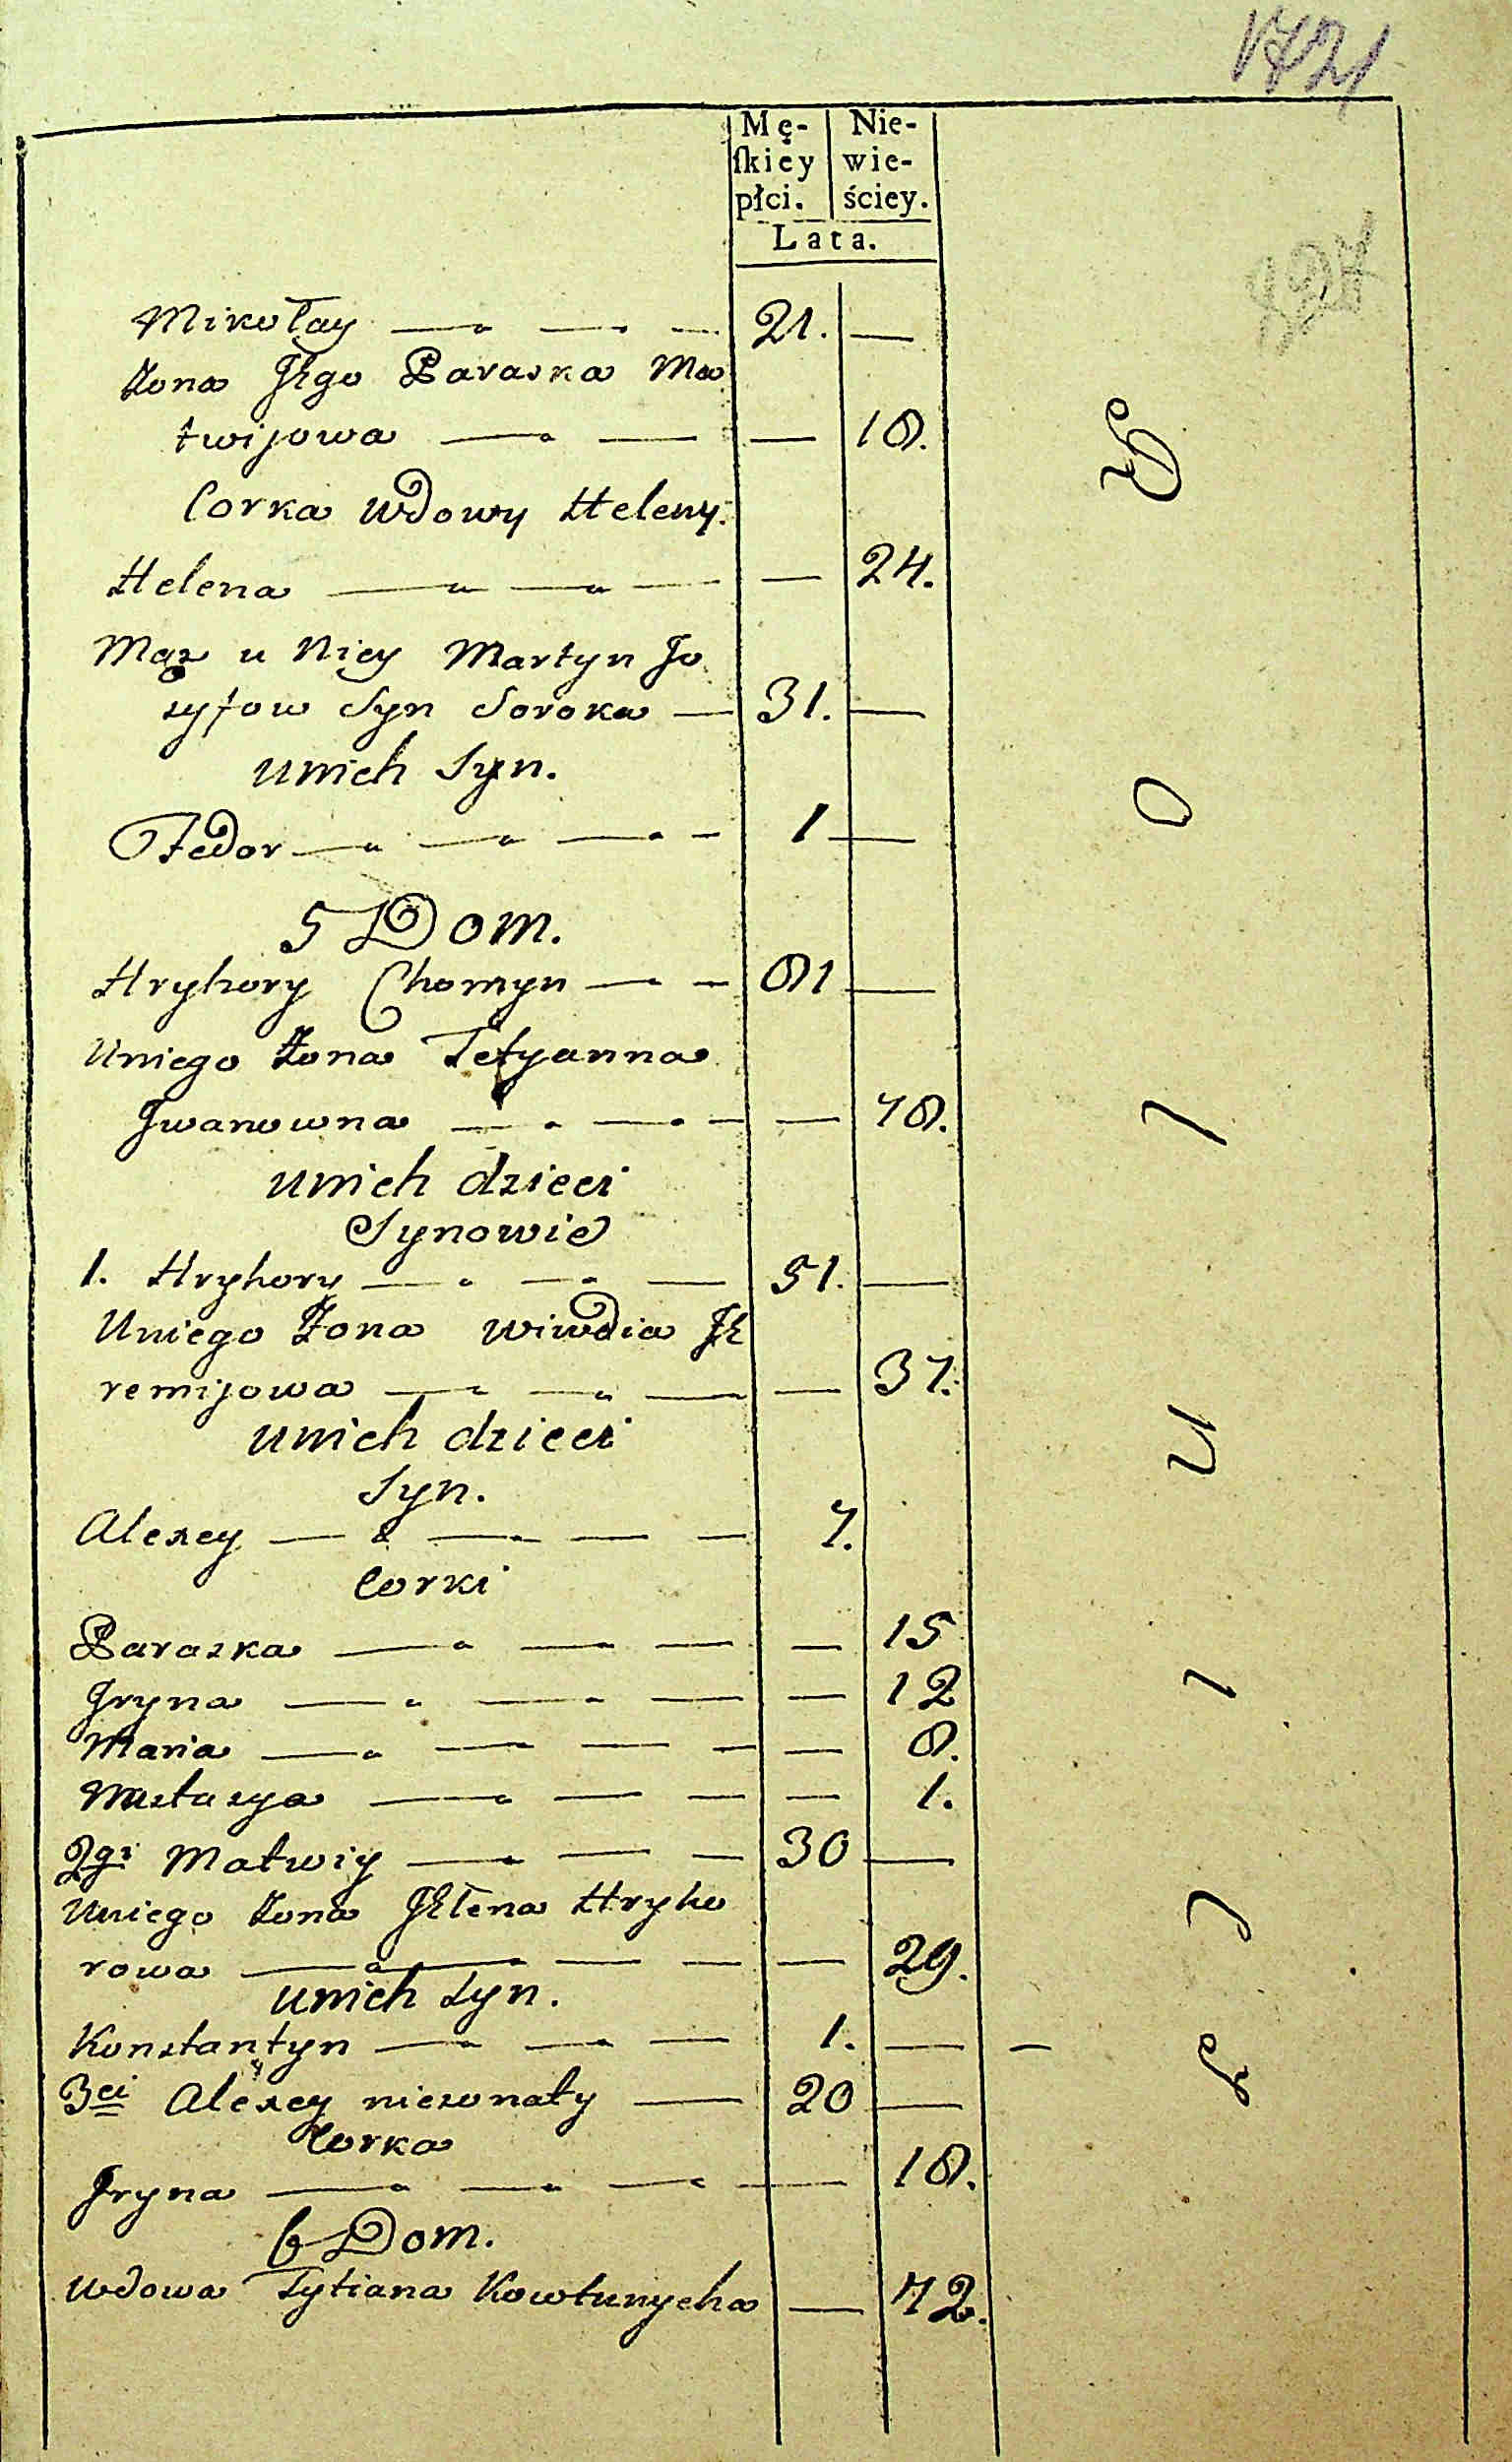 1721
Mę- Nie-
ſkiey wie-
płci. ściey.
Lata.
Mikołay — — — 21. —
Żona Jego Paraska Ma
twijowa — — — 18.
Corka wdowy Heleny.
Helena — — — — 24.
Mąz u Niey Martyn Jo
zyfow Syn Soroka — 31. —
unich Syn.
Fedor — — — - 1 —
5 Dom.
Hryhory Chomyn — - 81 —
Uniego Żona Tetyanna
Jwanowna — — - — 78.
unich dzieci
Synowie
1. Hryhory — — — 51. —
Uniego Żona Wiwdia Je
remijowa — — — — 37.
unich dzieci
Syn.
Alexey — — — — 7.
Corki
Paraska — — — — 15
Jryna — — — — 12
Maria — — — - — 8.
Nastazya — — — — 1.
2gi Matwiy — — — 30 —
Uniego Żona Jełena Hryho
rowa — — — — — 29.
unich Syn.
Konstantyn — — — 1. — —
3ci Alexey niezonaty — 20 —
Corka
Jryna — — — — 18.
6 Dom.
Wdowa Tytiana Kowtunycha — 72.